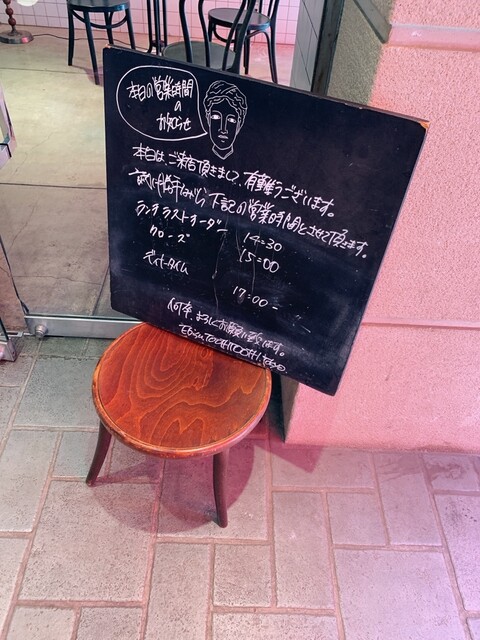 本日の営業時間
の
お知らせ
本日は、ご来店頂きまして、有難うございます。
誠に勝手ながら下記の営業時間とさせて頂きます。
ランチラストオーダー 14:30
クローズ 15:00
ディナータイム 17:00-
何卒、よろしくお願い致します。
Ebisu,TOOTHTOOTH.Tokyo.